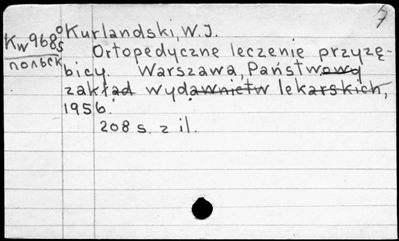 7
Kw968⁰₅ Kurlandski, W.J.
польск Ortopedyczne leczenie przyzę-
bicy. Warszawa, Państwowy
zakład wydawnictw lekarskich,
1956.
208 s. z il.